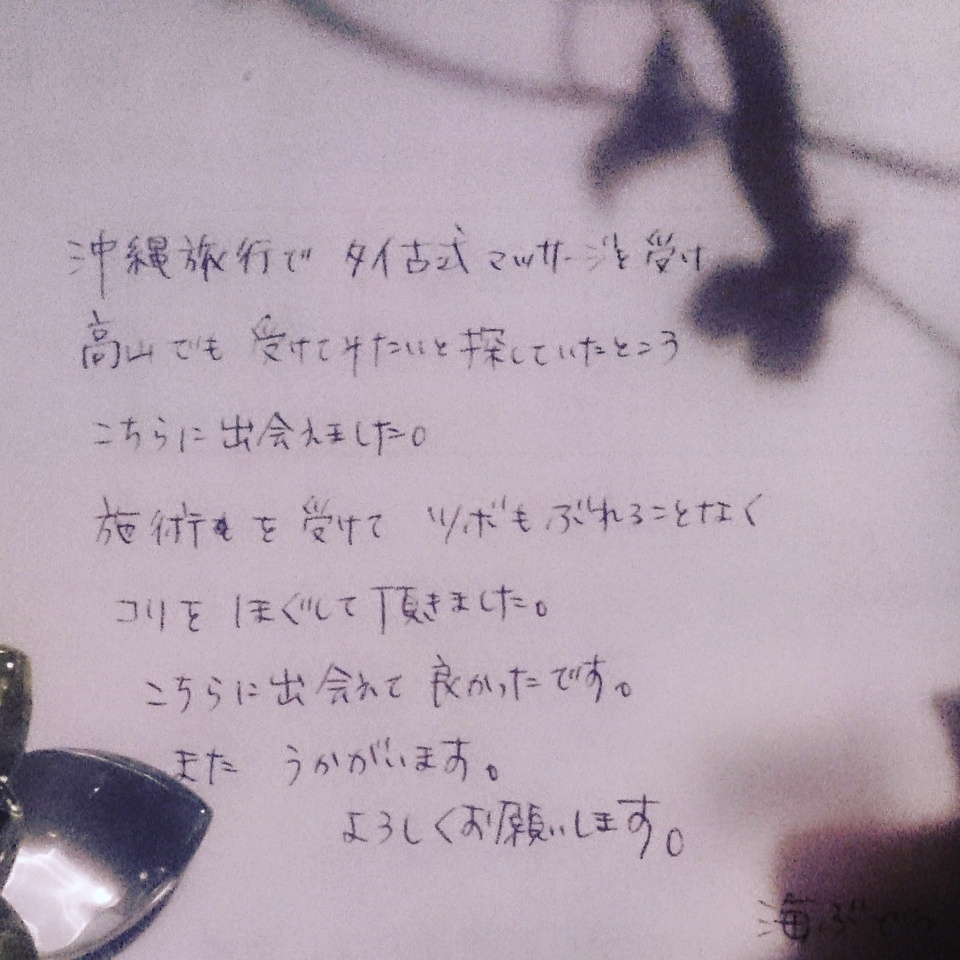 沖縄旅行で タイ古式マッサージを受け
高山でも 受けてみたいと探していたところ
こちらに出会えました。
施術を 受けて ツボもぶれることなく
コリを ほぐして頂きました。
こちらに出会えて 良かったです。
また うかがいます。
よろしくお願いします。
海ぶどう